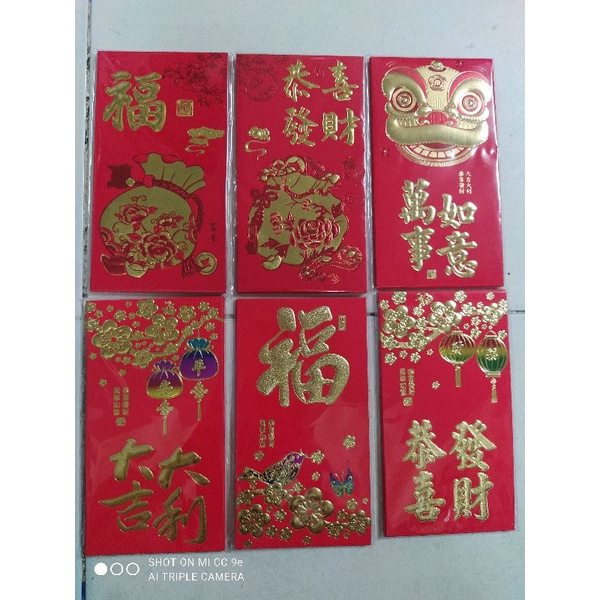 福
恭喜
發財
大吉大利
恭喜發財
萬事
如意
大吉
大利
福
恭喜
發財
SHOT ON MI CC 9e
AI TRIPLE CAMERA